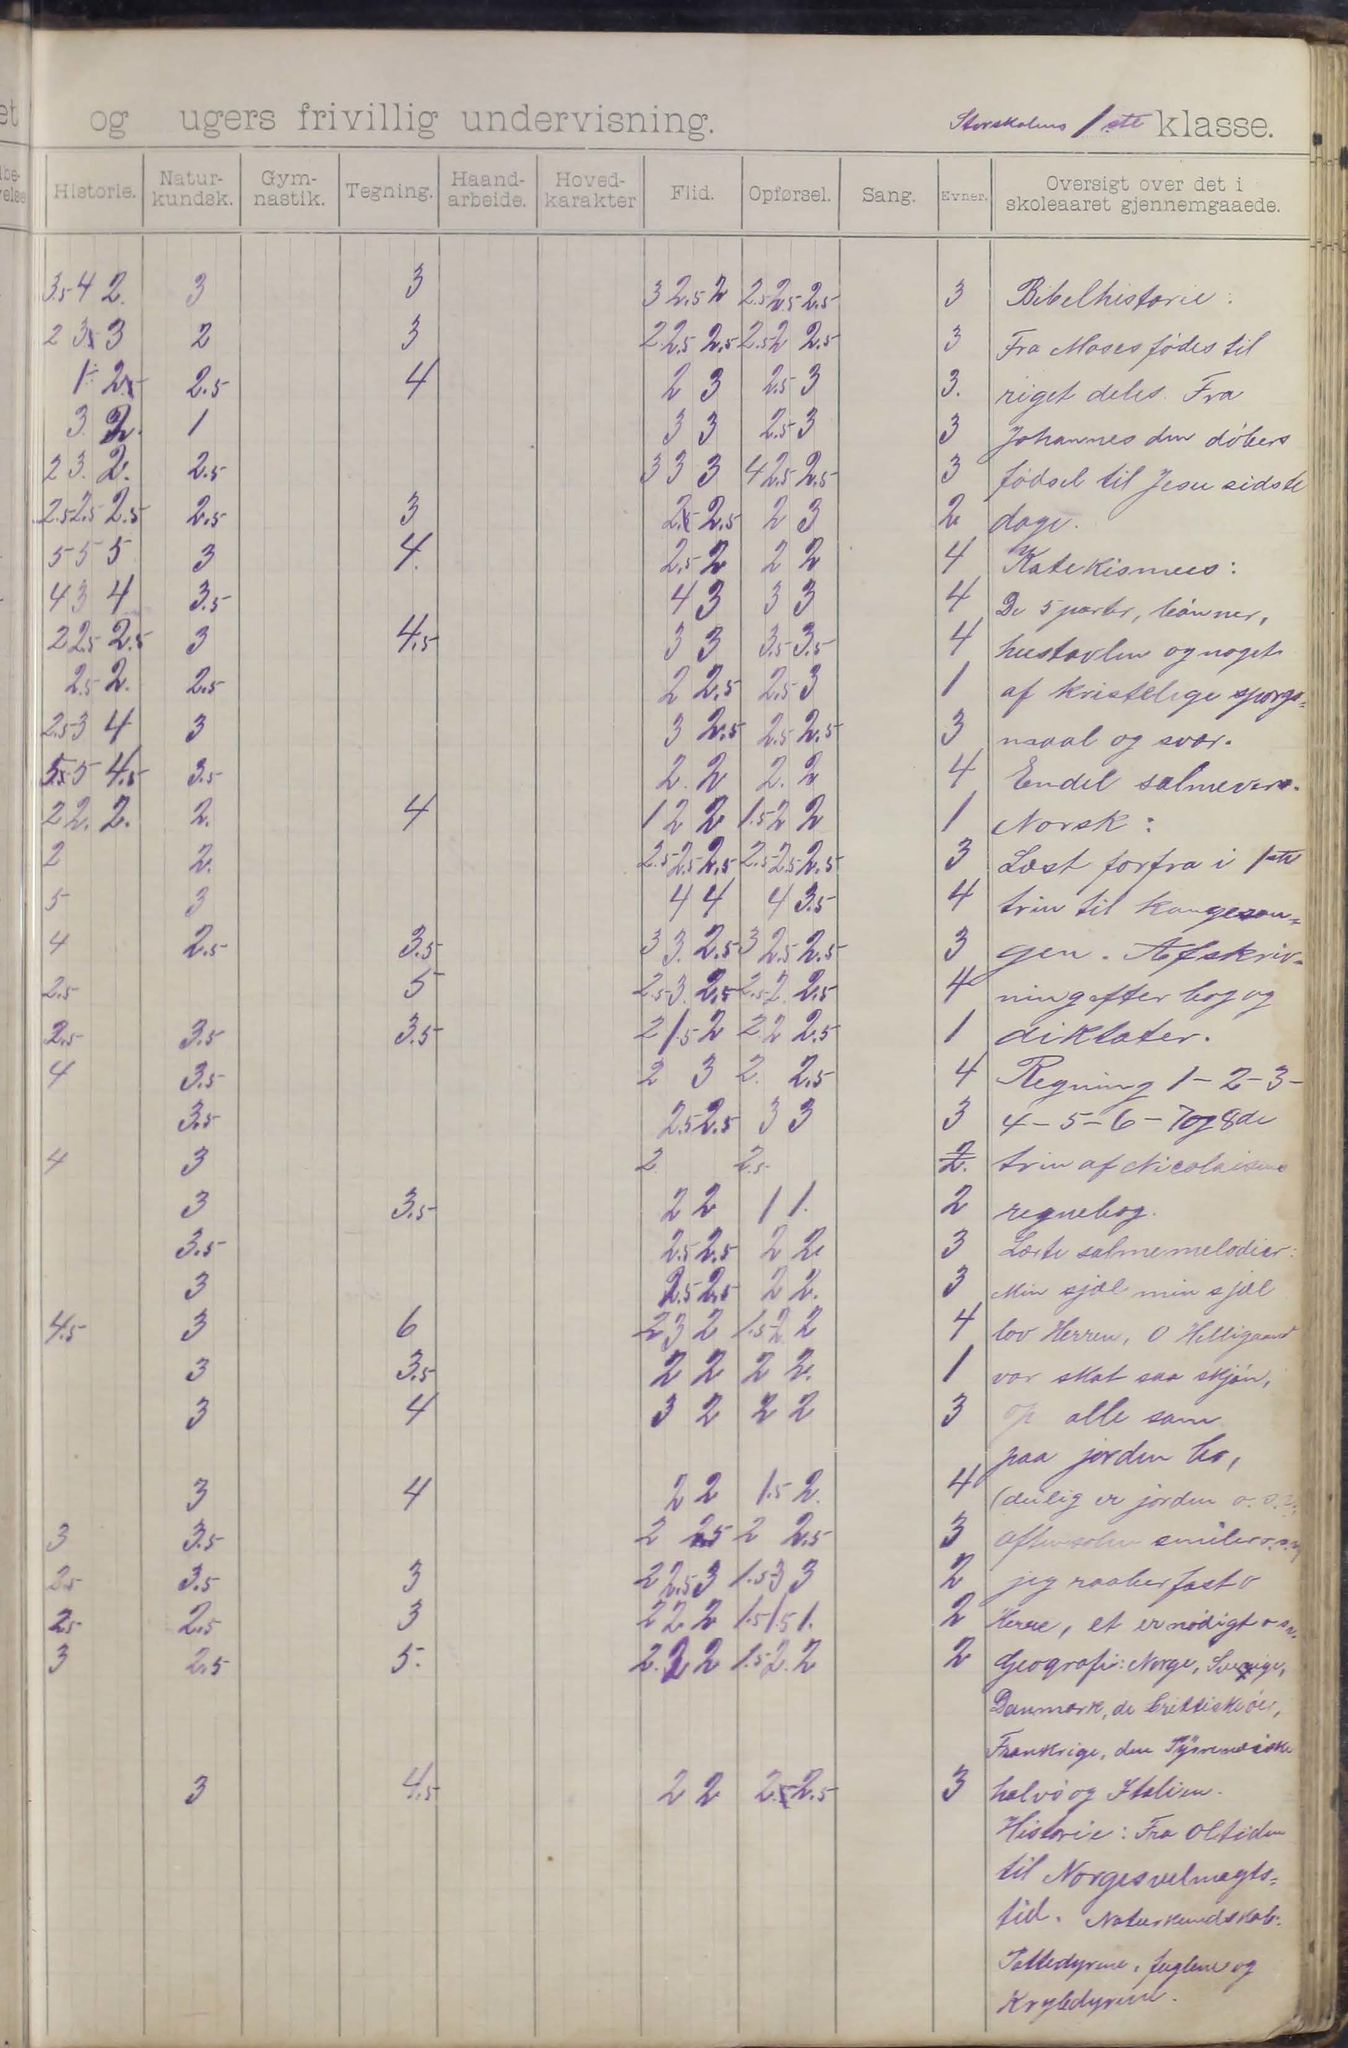 og ugers frivillig undervisning. Storskolens 1ste klasse.
Historie. Natur- kundsk. Gym- nastik. Tegning. Haand- arbeide. Hoved- karakter Flid. Opførsel. Sang. Evner. Oversigt over det i skoleaaret gjennemgaaede.
3.5 4 2. 3 3 3 2.5 2 2.5 2.5 2.5 3 Bibelhistorie:
2 3 3 2 3 2 2.5 2.5 2.5 2 2.5 3 Fra Moses fødes til
1 2.5 2.5 4 2 3 2.5 3 3. riget deles. Fra
3. 2. 1 3 3 2.5 3 3 Johannes den døbers
2 3. 2. 2.5 3 3 3 4 2.5 2.5 3 fødsel til Jesu sidste
2.5 2.5 2.5 2.5 3 2.5 2.5 2 3 2 dage.
5 5 5 3 4. 2.5 2 2 2 4 Katekismus:
4 3 4 3.5 4 3 3 3 4 De 5 parter, bønner,
2 2.5 2.5 3 4.5 3 3 3.5 3.5 4 hustavlen og noget
2.5 2. 2.5 2 2.5 2.5 3 1 af kristelige spørgs=
2.5 3 4 3 3 2.5 2.5 2.5 3 maal og svar.
5.5 5 4.5 3.5 2. 2 2. 2 4 Endel salmevers.
2 2. 2. 2. 4 1 2 2 1.5 2 2 1 Norsk:
2 2. 2.5 2.5 2.5 2.5 2.5 2.5 3 Læst forfra i 1ste
5 3 4 4 4 3.5 4 trin til kongesan=
4 2.5 3.5 3 3. 2.5 3 2.5 2.5 3 gen. Afskriv=
2.5 5 2.5 3. 2.5 2.5 2. 2.5 4 ning efter bog og
2.5 3.5 3.5 2 1.5 2 2 2 2.5 1 diktater.
4 3.5 2 3 2. 2.5 4 Regning 1-2-3-
3.5 2.5 2.5 3 3 3 4-5-6-7 og 8de
4 3 2 2.5 2. trin af Nicolaisens
3 3.5 2 2 1 1. 2 regnebog.
3.5 2.5 2.5 2 2 3 Lærte salmemelodier:
3 2.5 2.5 2 2. 3 Min sjæl min sjæl
4.5 3 6 2 3 2 1.5 2 2 4 lov Herren, O Helligaand
3 3.5 2 2 2 2. 1 vor skat saa skjøn,
3 4 3 2 2 2 3 op alle som
paa jorden bo,
3 4 2 2 1.5 2. 4 (deilig er jorden o.s.v.
3 3.5 2 2.5 2 2.5 3 aftensolen smiler o.s.v.
2.5 3.5 3 2 2.5 3 1.5 3 3 2 jeg raaber fast o
2.5 2.5 3 2 2 2 1.5 1.5 1. 2 Herre, et er nødigt o.s.v.
3 2.5 5. 2. 2 2 1.5 2. 2 2 Geografi: Norge, Sverige,
Danmark, de brittiske øer,
Frankrige, den Pyrenæiske
3 4.5 2 2 2.5 2.5 3 halvø og Italien.
Historie: Fra Oltiden
til Norges velmagts=
tid. Naturkundskab:
Pattedyrene, fuglene og
Krybdyrene.